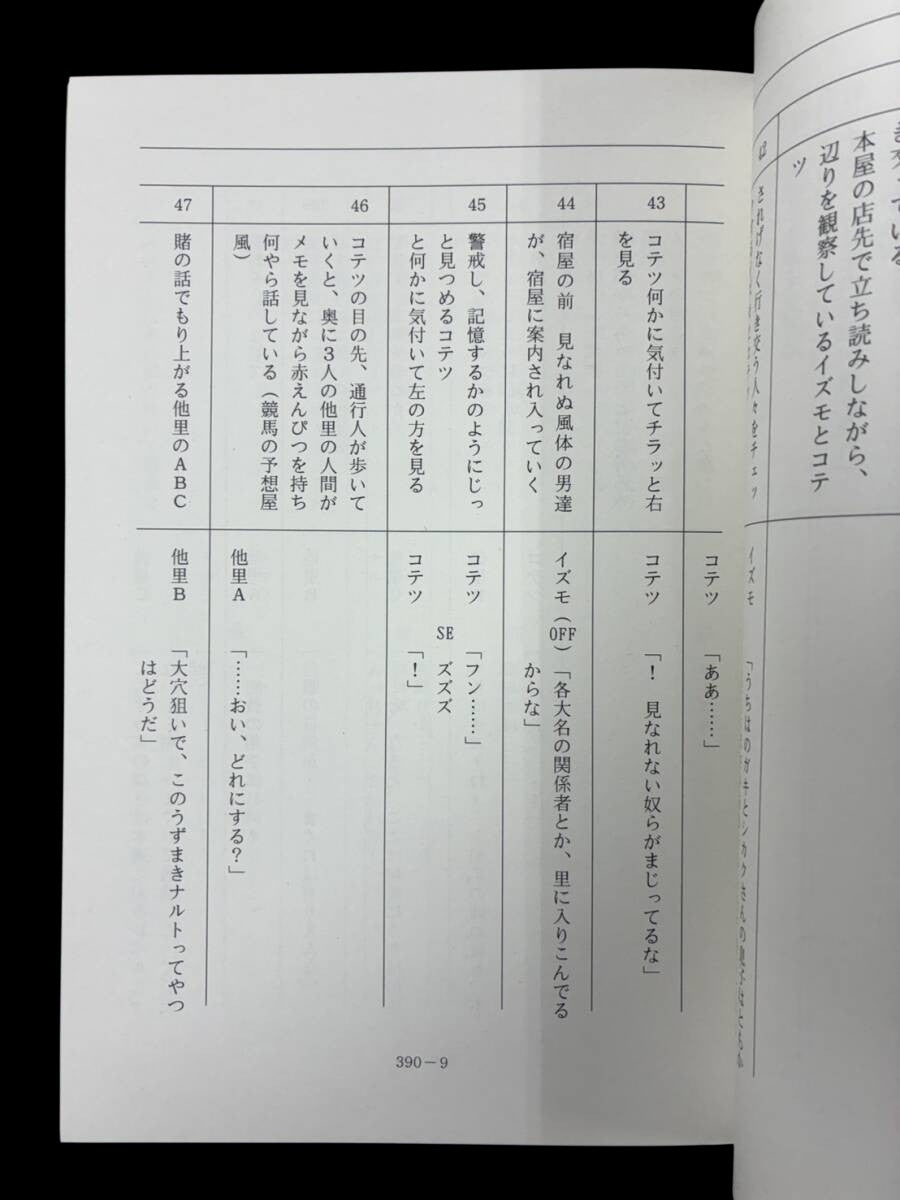 き交っている
本屋の店先で立ち読みしながら、
辺りを観察しているイズモとコテ
ツ
42
さりげなく行き交う人々をチェッ
イズモ
コテツ
「ああ……」
43
コテツ何かに気付いてチラッと右
を見る
コテツ
「！　見なれない奴らがまじってるな」
44
宿屋の前　見なれぬ風体の男達
が、宿屋に案内され入っていく
イズモ（OFF）「各大名の関係者とか、里に入りこんでる
からな」
45
警戒し、記憶するかのようにじっ
と見つめるコテツ
と何かに気付いて左の方を見る
コテツ
「フン……」
SE　ズズズ
コテツ
「！」
46
コテツの目の先、通行人が歩いて
いくと、奥に３人の他里の人間が
メモを見ながら赤えんぴつを持ち
何やら話している（競馬の予想屋
風）
他里Ａ
「……おい、どれにする？」
47
賭の話でもり上がる他里のＡＢＣ
他里Ｂ
「大穴狙いで、このうずまきナルトってやつ
はどうだ」
390－9